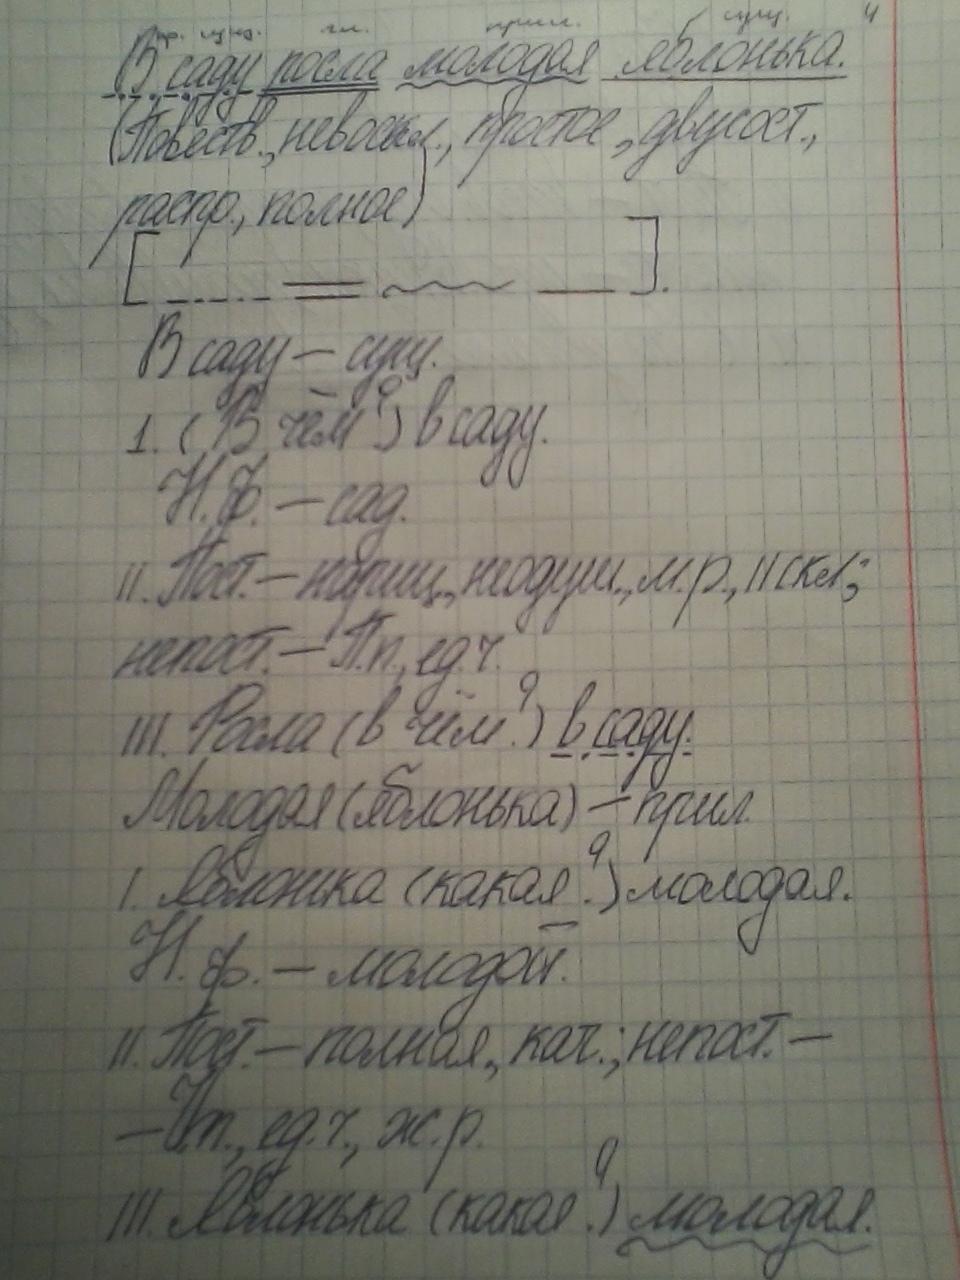 пр. сущ. гл. прил. сущ. 4
В саду росла молодая яблонька.
(Повеств., невоскл., простое, двусост.,
распр., полное)
[ ].
В саду – сущ.
I. (В чём?) в саду.
Н.ф. – сад.
II. Пост. – нариц., неодуш., м.р., II скл.;
непост. – П.п., ед.ч.
III. Росла (в чём?) в саду.
Молодая (яблонька) – прил.
I. Яблонька (какая?) молодая.
Н.ф. – молодой.
II. Пост. – полная, кач.; непост. –
– И.п., ед.ч., ж.р.
III. Яблонька (какая?) молодая.